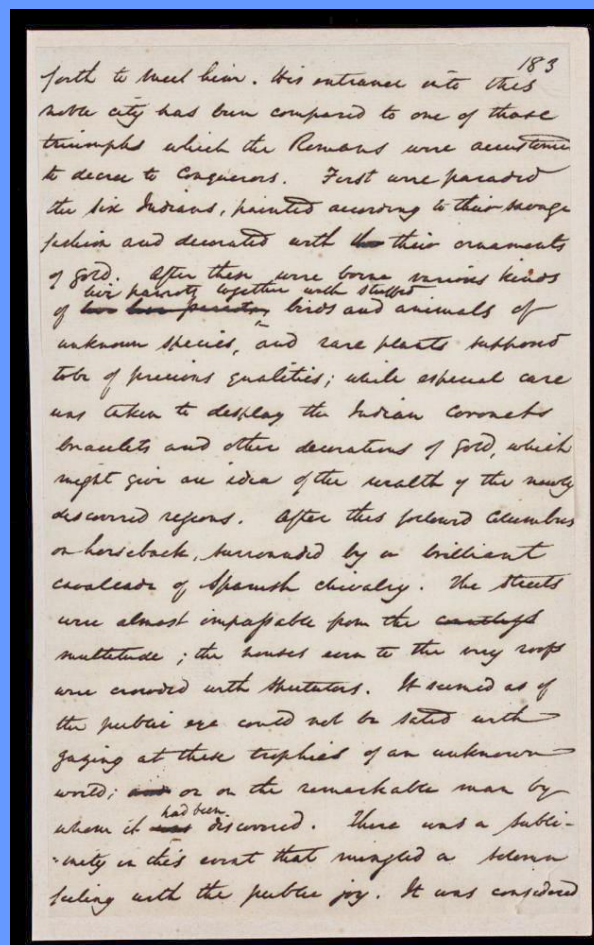 183
forth to meet him. His entrance into this
noble city has been compared to one of those
triumphs which the Romans were accustomed
to decree to Conquerors. First were paraded
the six Indians, painted according to their savage
fashion and decorated with the their ornaments
of gold. After these were borne various kinds
live parrots together with stuffed
of live parrots, birds and animals of
unknown species, and rare plants supposed
to be of precious qualities; while especial care
was taken to display the Indian Coronets
bracelets and other decorations of gold, which
might give an idea of the wealth of the newly
discovered regions. After this followed Columbus
on horseback, surrounded by a brilliant
cavalcade of Spanish chivalry. The streets
were almost impassable from the countless
multitude; the houses even to the very roofs
were crowded with spectators. It seemed as if
the public eye could not be sated with
gazing at these trophies of an unknown
world; and or on the remarkable man by
had been
whom it was discovered. There was a subli-
-mity in this event that mingled a solemn
feeling with the public joy. It was considered